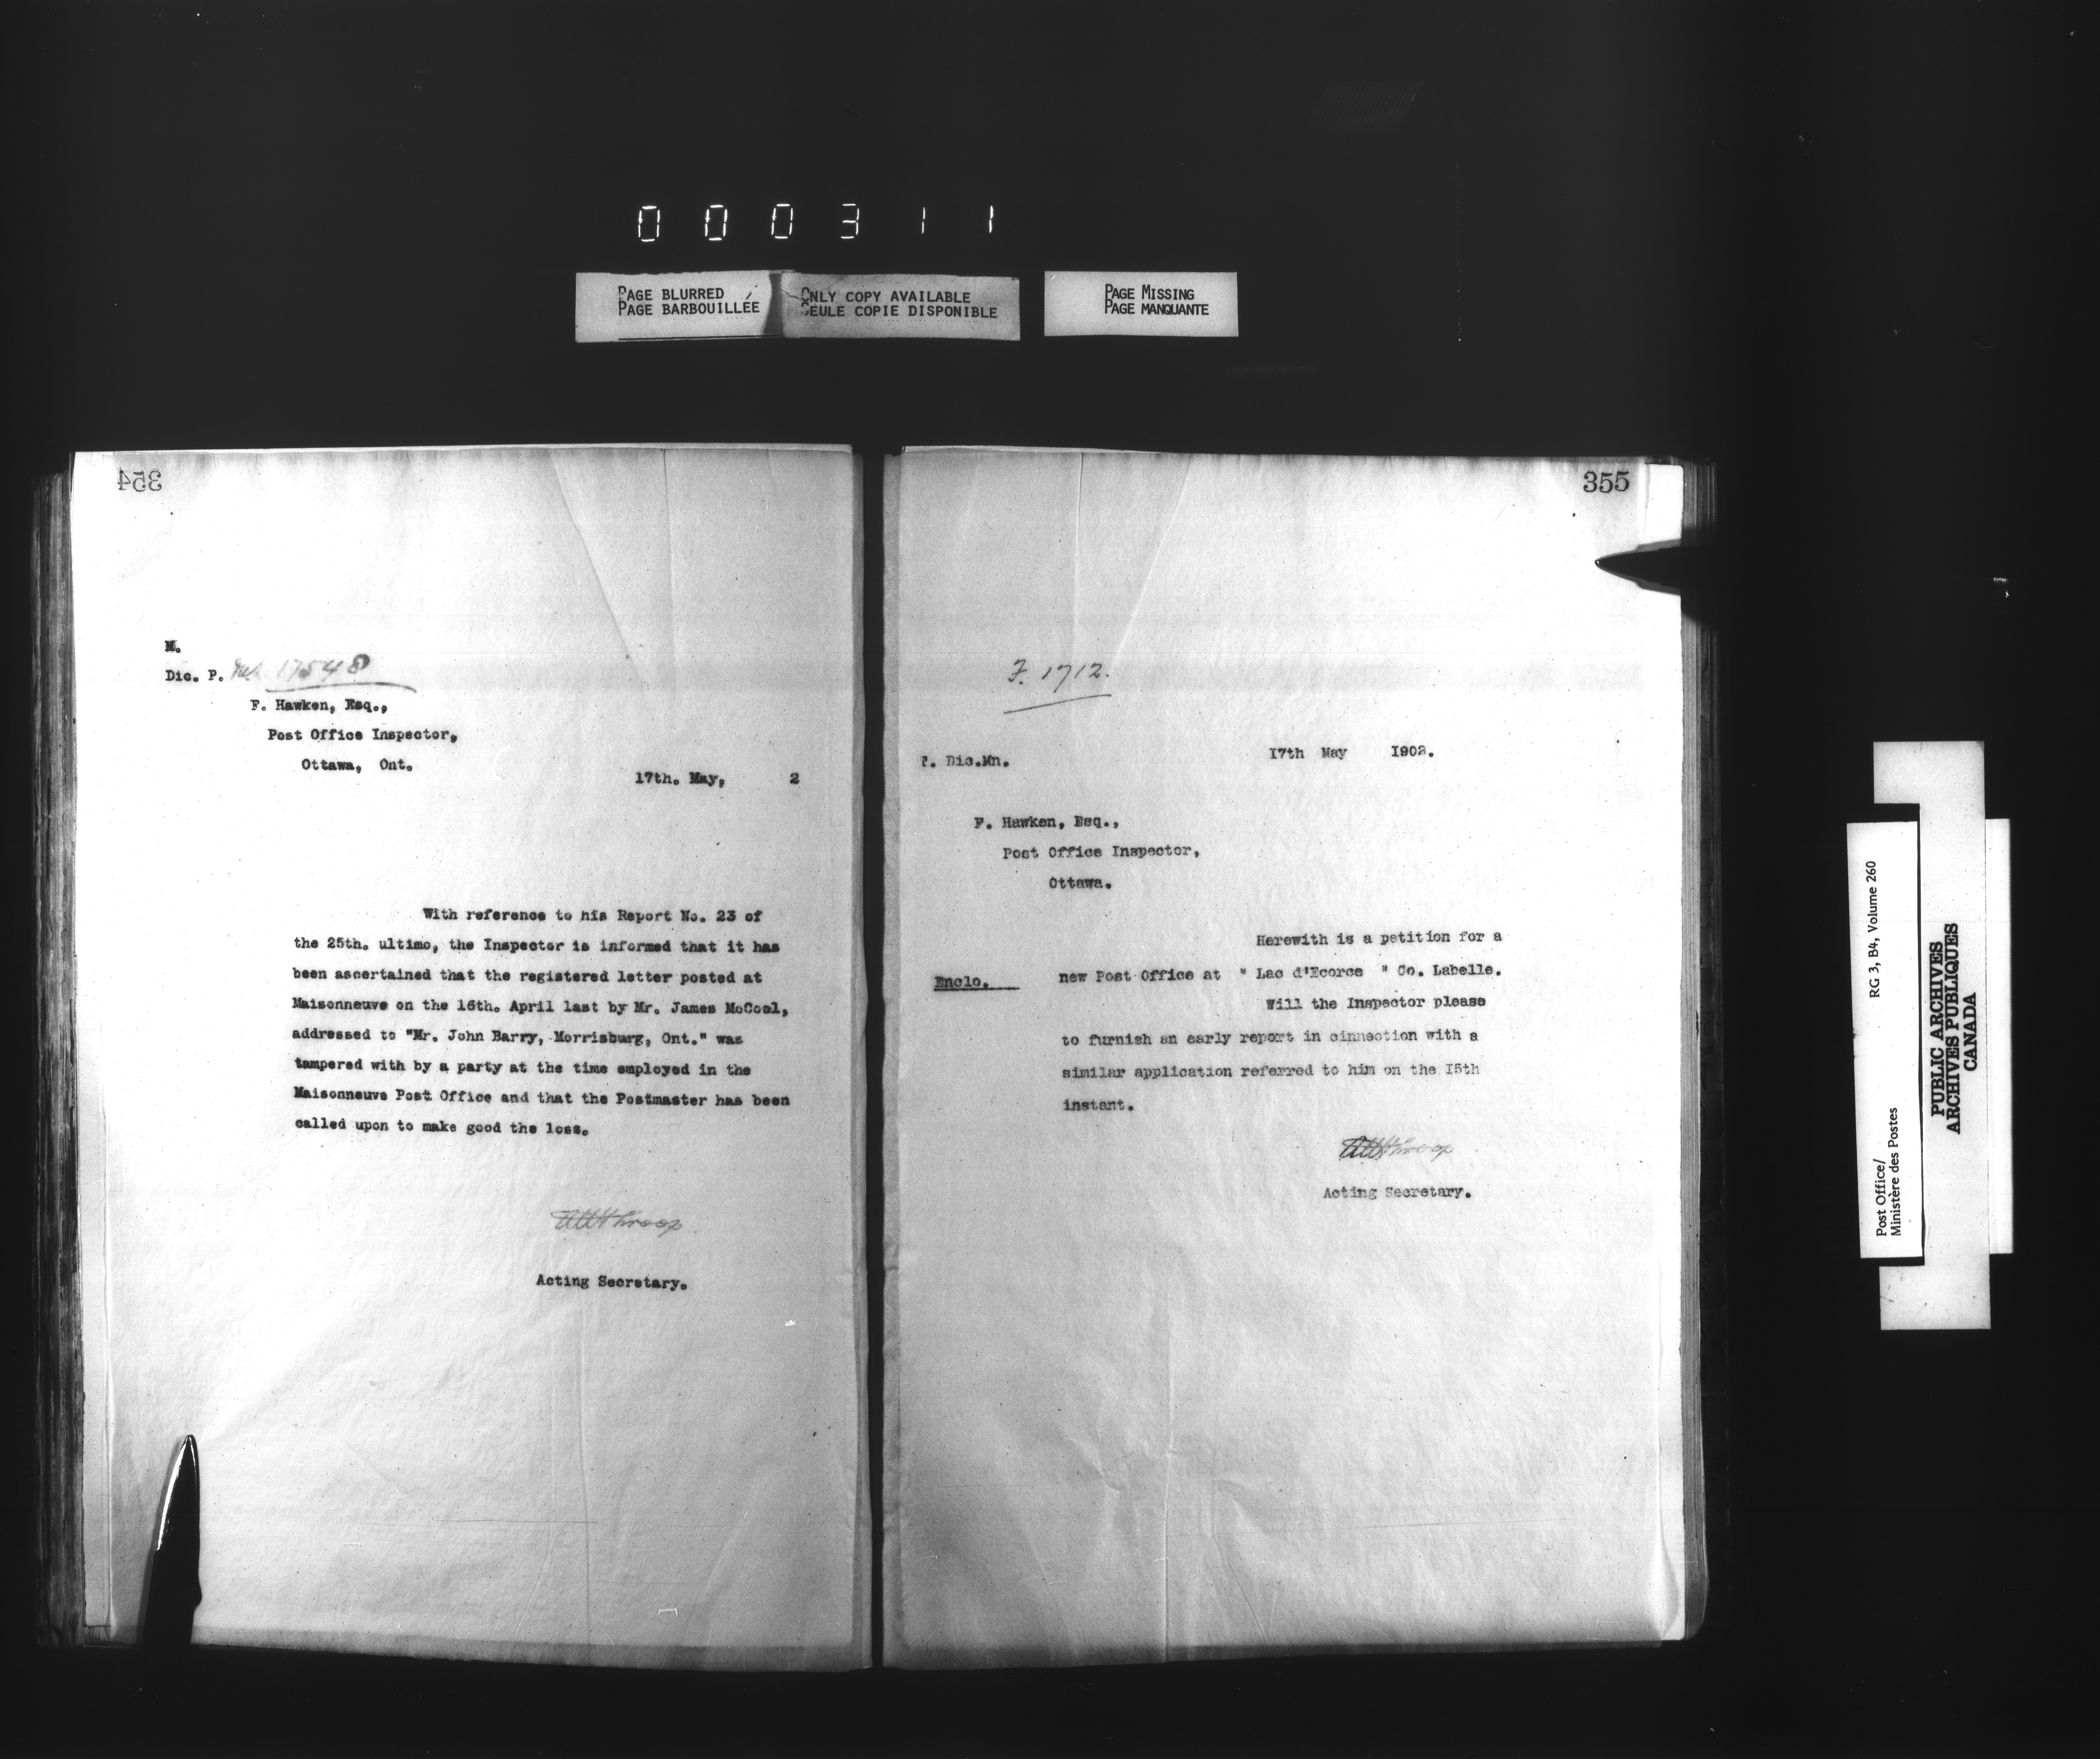 000311
PAGE BLURRED
PAGE BARBOUILLÉE
ONLY COPY AVAILABLE
SEULE COPIE DISPONIBLE
PAGE MISSING
PAGE MANQUANTE
354
M.
Dic. P. 17548
F. Hawken, Esq.,
Post Office Inspector,
Ottawa, Ont.
17th. May, 2
With reference to his Report No. 23 of
the 25th. ultimo, the Inspector is informed that it has
been ascertained that the registered letter posted at
Maisonneuve on the 16th. April last by Mr. James McCool,
addressed to "Mr. John Barry, Morrisburg, Ont." was
tampered with by a party at the time employed in the
Maisonneuve Post Office and that the Postmaster has been
called upon to make good the loss.
Throop
Acting Secretary.
355
F. 1712.
P. Dic.Mn.
17th May 1902.
F. Hawken, Esq.,
Post Office Inspector,
Ottawa.
Herewith is a petition for a
Enclo. new Post Office at " Lac d'Ecorce " Co. Labelle.
Will the Inspector please
to furnish an early report in cinnection with a
similar application referred to him on the I5th
instant.
Throop
Acting Secretary.
Post Office/
Ministère des Postes
RG 3, B4, Volume 260
PUBLIC ARCHIVES
ARCHIVES PUBLIQUES
CANADA